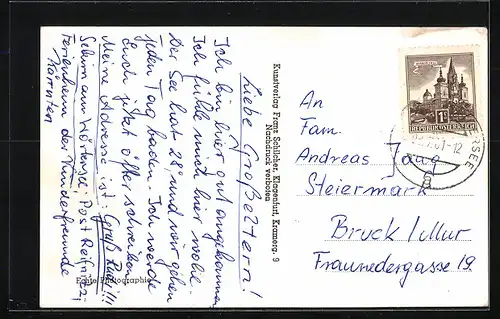 Liebe Großeltern!
Ich bin hier gut angekommen.
Ich fühle mich hier wohl.
Der See hat 28°, und wir gehen
jeden Tag baden. Ich werde
Euch jetzt öfter schreiben
Meine Adresse ist: Gruß
Sekirn am Wörthersee, Post Reifnitz,
Ferienheim der Kinderfreunde
Kärnten
Echte Photographie
Kunstverlag Franz Schilcher, Klagenfurt, Kramerg. 9
Nachdruck verboten
REPUBLIK ÖSTERREICH
An
Fam.
Andreas
Steiermark
Bruck/Mur
Fraunedergasse 19.